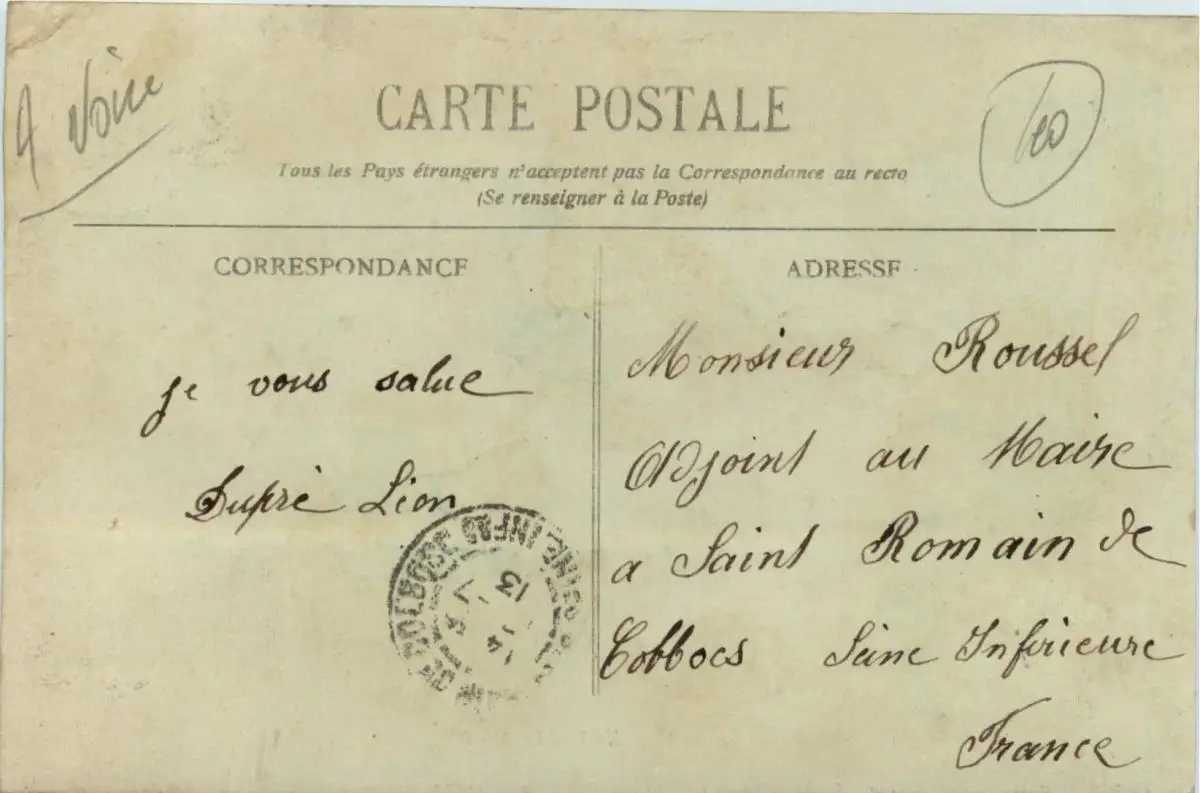 A Voir
CARTE POSTALE
10
Tous les Pays étrangers n'acceptent pas la Correspondance au recto
(Se renseigner à la Poste)
CORRESPONDANCE
ADRESSE
je vous salue
Dupré Léon
Monsieur Roussel
Adjoint au Maire
a Saint Romain de
Colbocs Seine Inférieure
France
SEINE INFRE
13
14